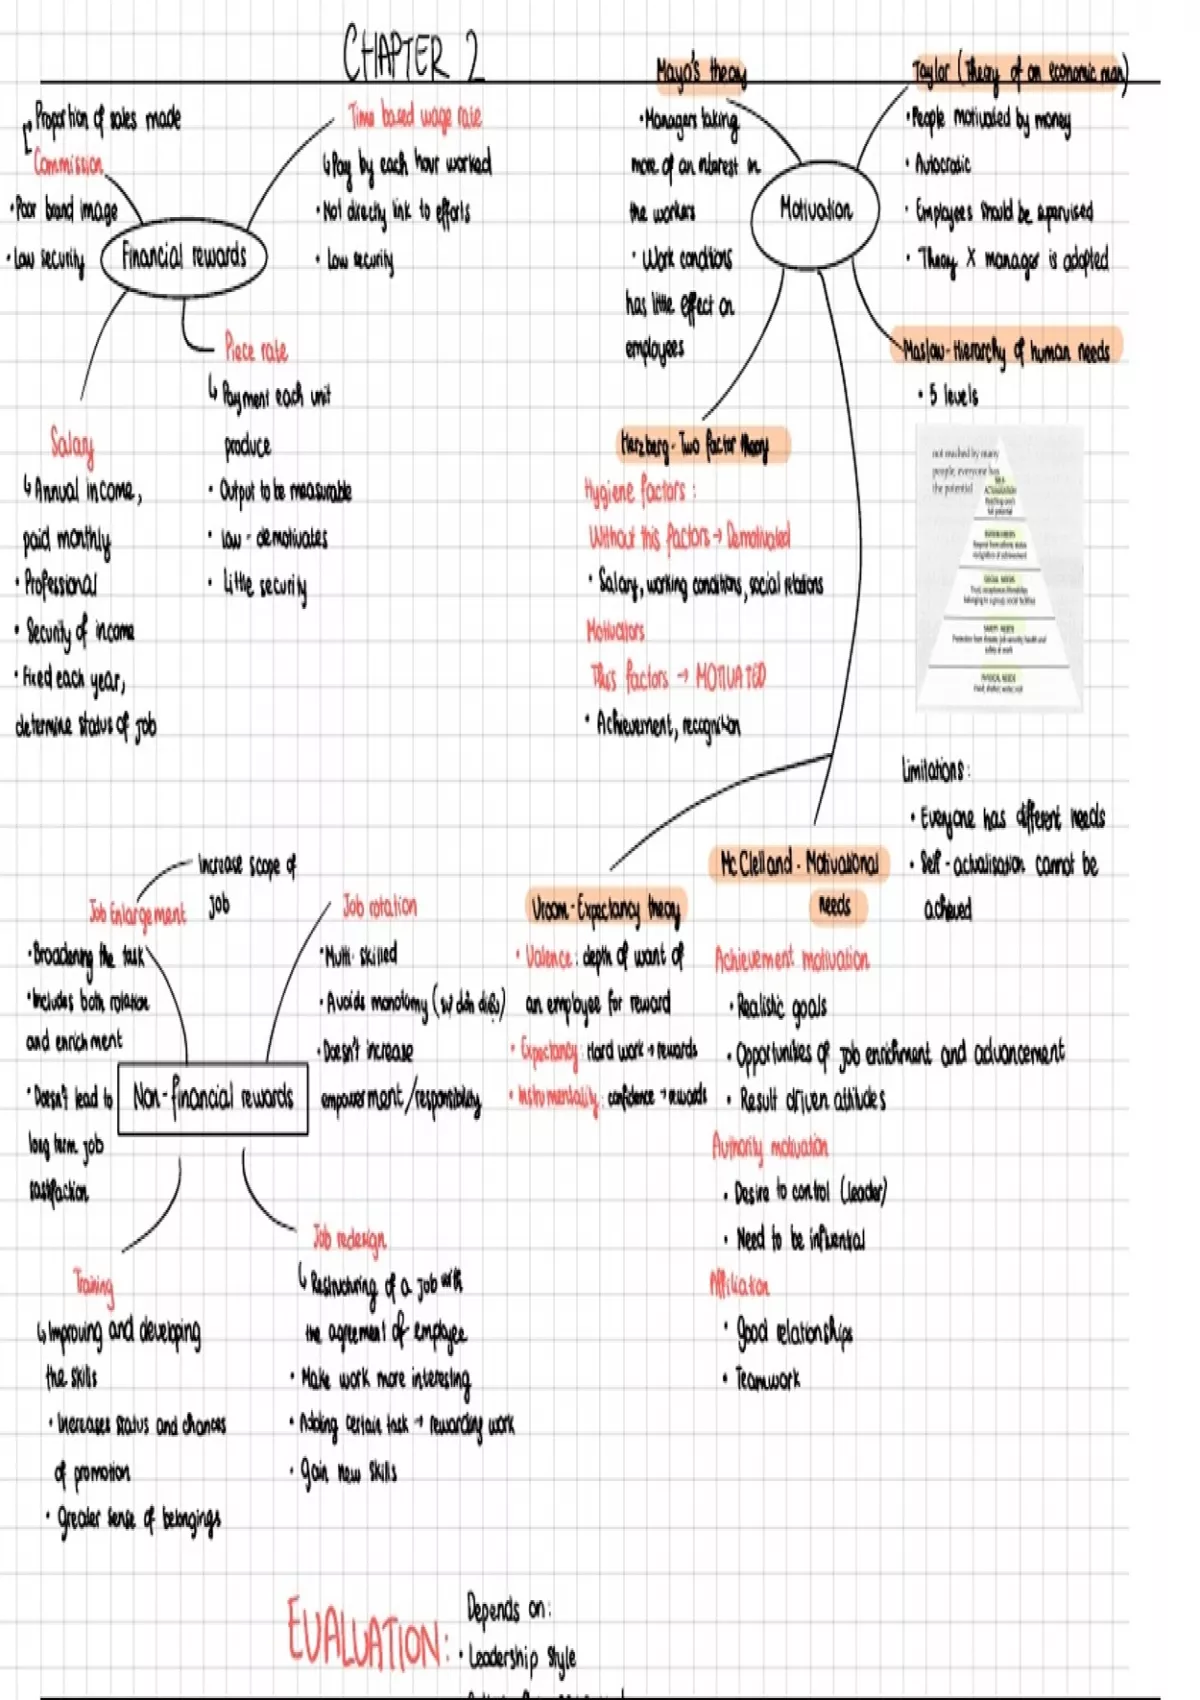 CHAPTER 2
Proportion of sales made
Commission
• Poor brand image
• Low security
Financial rewards
Time based wage rate
↳ Pay by each hour worked
• Not directly link to efforts
• Low security
Piece rate
↳ Payment each unit
produce
• Output to be measurable
• Low - demotivates
• Little security
Salary
↳ Annual income,
paid monthly
• Professional
• Security of income
• Fixed each year,
determine status of job
Mayo's theory
• Managers taking
more of an interest in
the workers
• Work conditions
has little effect on
employees
Motivation
Taylor (Theory of an economic man)
• People motivated by money
• Autocratic
• Employees should be supervised
• Theory X manager is adopted
Maslow - Hierarchy of human needs
• 5 levels
not reached by many
people; everyone has
the potential
SELF
ACTUALISATION
Reaching one's
full potential
ESTEEM NEEDS
Respect from others, status
recognition of achievement
SOCIAL NEEDS
Trust, acceptance, friendships
belonging to a group, social facilities
SAFETY NEEDS
Protection from threats, job security, health and
safety at work
PHYSICAL NEEDS
Food, shelter, water, rest
Limitations:
• Everyone has different needs
• Self-actualisation cannot be
achieved
Herzberg - Two factor theory
Hygiene factors:
Without this factors → Demotivated
• Salary, working conditions, social relations
Motivators
This factors → MOTIVATED
• Achievement, recognition
Vroom - Expectancy theory
• Valence: depth of want of
an employee for reward
• Expectancy: Hard work → rewards
• Instrumentality: confidence → rewards
McClelland - Motivational
needs
Achievement motivation
• Realistic goals
• Opportunities of job enrichment and advancement
• Result driven attitudes
Authority motivation
• Desire to control (leader)
• Need to be influential
Affiliation
• Good relationships
• Teamwork
Increase scope of
job
Job Enlargement
• Broadening the task
• Includes both rotation
and enrichment
• Doesn't lead to
long term job
satisfaction
Non-financial rewards
Job rotation
• Multi-skilled
• Avoids monotomy (sự đơn điệu)
• Doesn't increase
empowerment/responsibility
Training
↳ Improving and developing
the skills
• Increases status and chances
of promotion
• Greater sense of belongings
Job redesign
↳ Restructuring of a job with
the agreement of employee
• Make work more interesting
• Adding certain task → rewarding work
• Gain new skills
EVALUATION:
Depends on:
• Leadership style